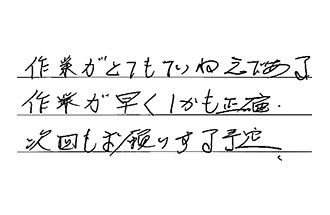 作業がとてもていねえである
作業が早くしかも正確.
次回もお願いする予定、